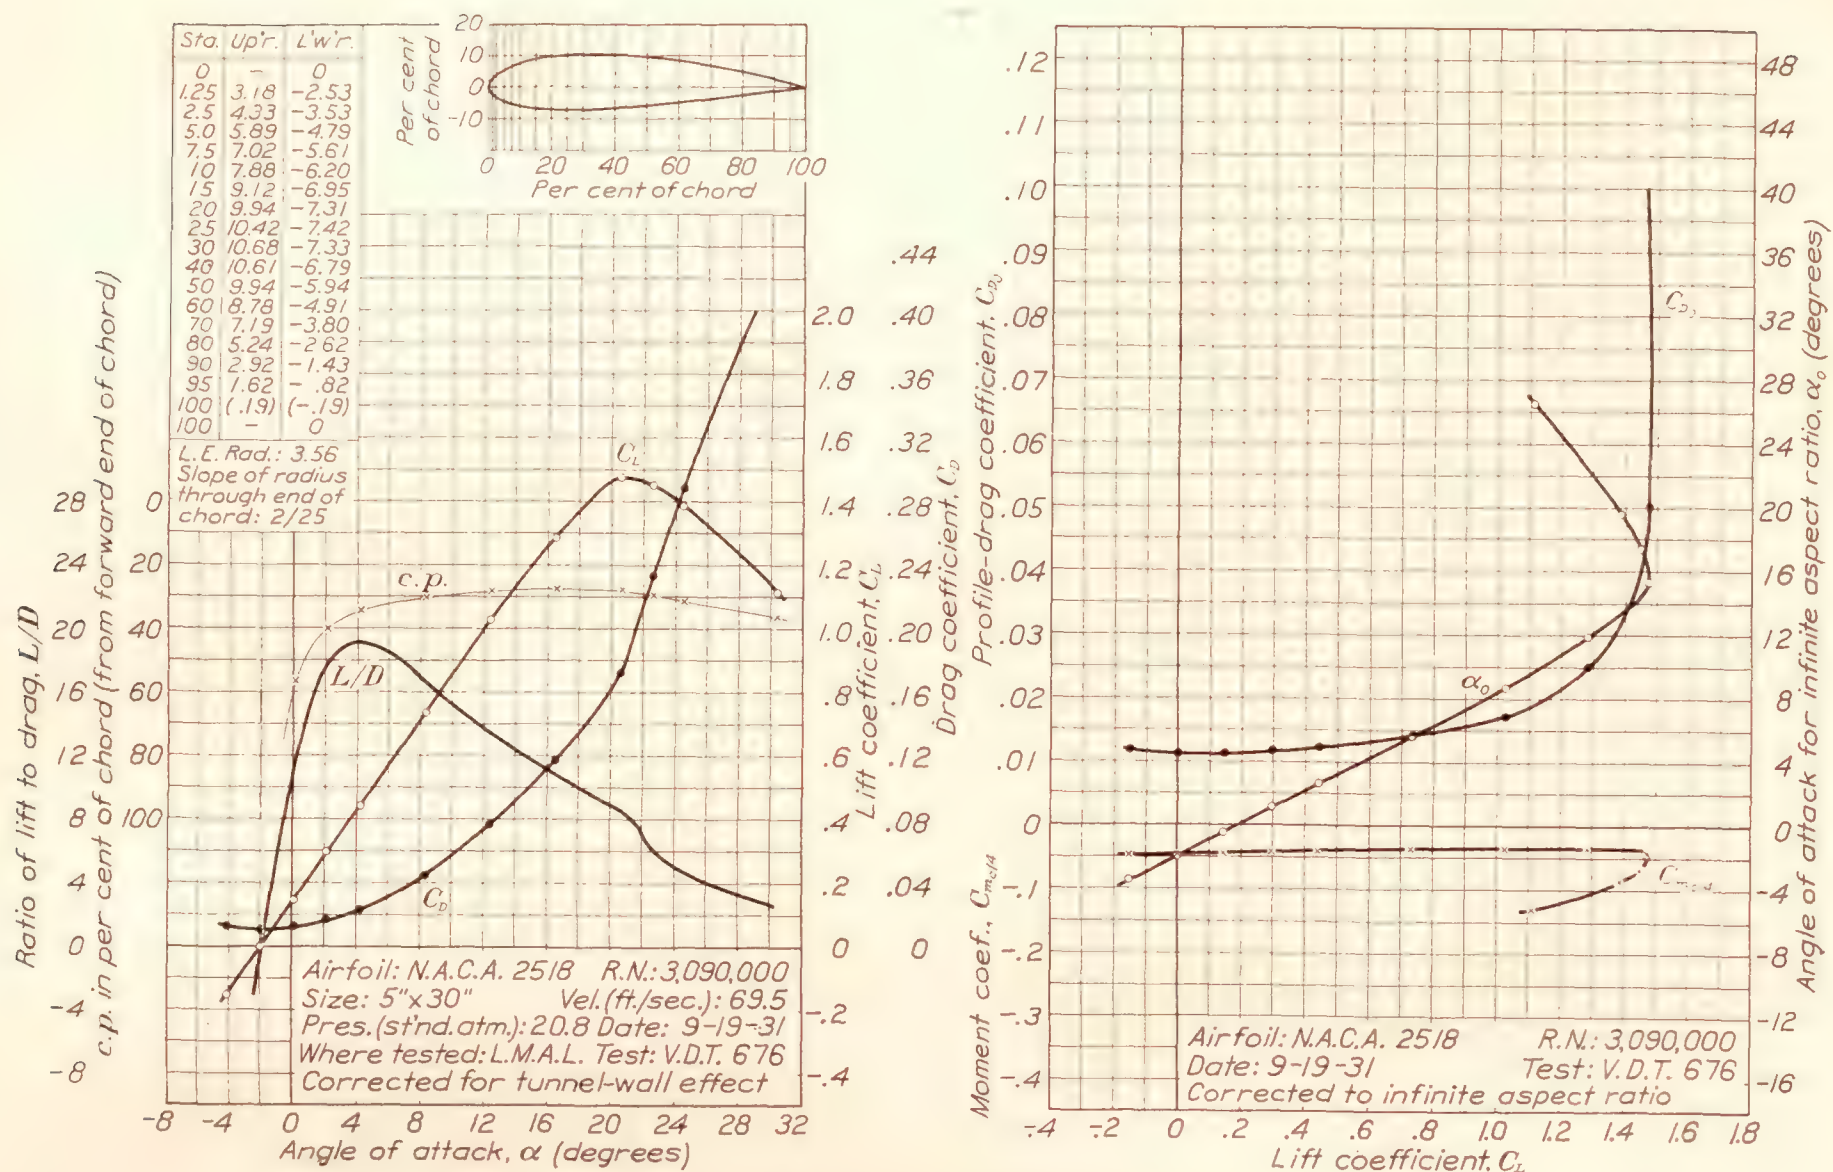 Sta. Up'r. L'w'r.
0 – 0
1.25 3.18 -2.53
2.5 4.33 -3.53
5.0 5.89 -4.79
7.5 7.02 -5.61
10 7.88 -6.20
15 9.12 -6.95
20 9.94 -7.31
25 10.42 -7.42
30 10.68 -7.33
40 10.61 -6.79
50 9.94 -5.94
60 8.78 -4.91
70 7.19 -3.80
80 5.24 -2.62
90 2.92 -1.43
95 1.62 - .82
100 (.19) (-.19)
100 – 0
L.E. Rad.: 3.56
Slope of radius
through end of
chord: 2/25
Per cent
of chord
20
10
0
-10
0 20 40 60 80 100
Per cent of chord
Ratio of lift to drag, L/D
28
24
20
16
12
8
4
0
-4
-8
c.p. in per cent of chord (from forward end of chord)
0
20
40
60
80
100
C_L
c.p.
L/D
C_D
2.0
1.8
1.6
1.4
1.2
1.0
.8
.6
.4
.2
0
-.2
-.4
Lift coefficient, C_L
.44
.40
.36
.32
.28
.24
.20
.16
.12
.08
.04
0
Drag coefficient, C_D
Airfoil: N.A.C.A. 2518 R.N.: 3,090,000
Size: 5"x30" Vel.(ft./sec.): 69.5
Pres.(st'nd.atm.): 20.8 Date: 9-19-31
Where tested: L.M.A.L. Test: V.D.T. 676
Corrected for tunnel-wall effect
-8 -4 0 4 8 12 16 20 24 28 32
Angle of attack, α (degrees)
Profile-drag coefficient, C_D0
.12
.11
.10
.09
.08
.07
.06
.05
.04
.03
.02
.01
0
Moment coef., C_mc/4
-.1
-.2
-.3
-.4
C_D0
α₀
48
44
40
36
32
28
24
20
16
12
8
4
0
-4
-8
-12
-16
Angle of attack for infinite aspect ratio, α₀ (degrees)
Airfoil: N.A.C.A. 2518 R.N.: 3,090,000
Date: 9-19-31 Test: V.D.T. 676
Corrected to infinite aspect ratio
-.4 -.2 0 .2 .4 .6 .8 1.0 1.2 1.4 1.6 1.8
Lift coefficient, C_L